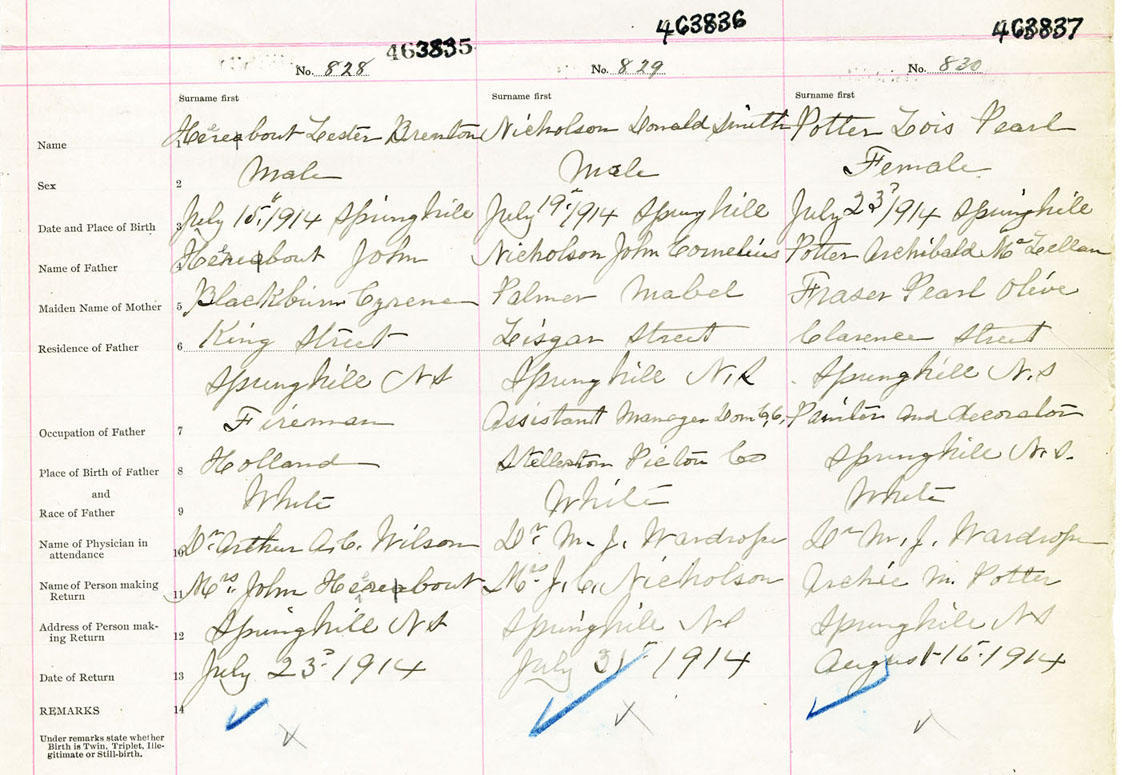 463835 463836 463837
No. 828 No. 829 No. 830
Surname first Surname first Surname first
Name 1 Hereabout Lester Brenton Nicholson Donald Smith Potter Lois Pearl
Sex 2 Male Male Female
Date and Place of Birth 3 July 15th 1914 Springhill July 19th 1914 Springhill July 23d 1914 Springhill
Name of Father 4 Hereabout John Nicholson John Cornelius Potter Archibald McLellan
Maiden Name of Mother 5 Blackburn Cyrene Palmer Mabel Fraser Pearl Olive
Residence of Father 6 King Street Lisgar Street Clarence Street
Springhill NS Springhill N.S Springhill N.S
Occupation of Father 7 Fireman Assistant Manager Dom Painter and decorator
Place of Birth of Father 8 Holland Stellarton Pictou Co Springhill N.S.
and
Race of Father 9 White White White
Name of Physician in
attendance 10 Dr Arthur A.C. Wilson Dr M. J. Wardrope Dr M. J. Wardrope
Name of Person making
Return 11 Mrs. John Hereabout Mrs. J. C. Nicholson Archie M. Potter
Address of Person mak-
ing Return 12 Springhill NS Springhill NS Springhill NS
Date of Return 13 July 23d 1914 July 31st 1914 August 16th 1914
REMARKS 14
Under remarks state whether
Birth is Twin, Triplet, Ille-
gitimate or Still-birth.